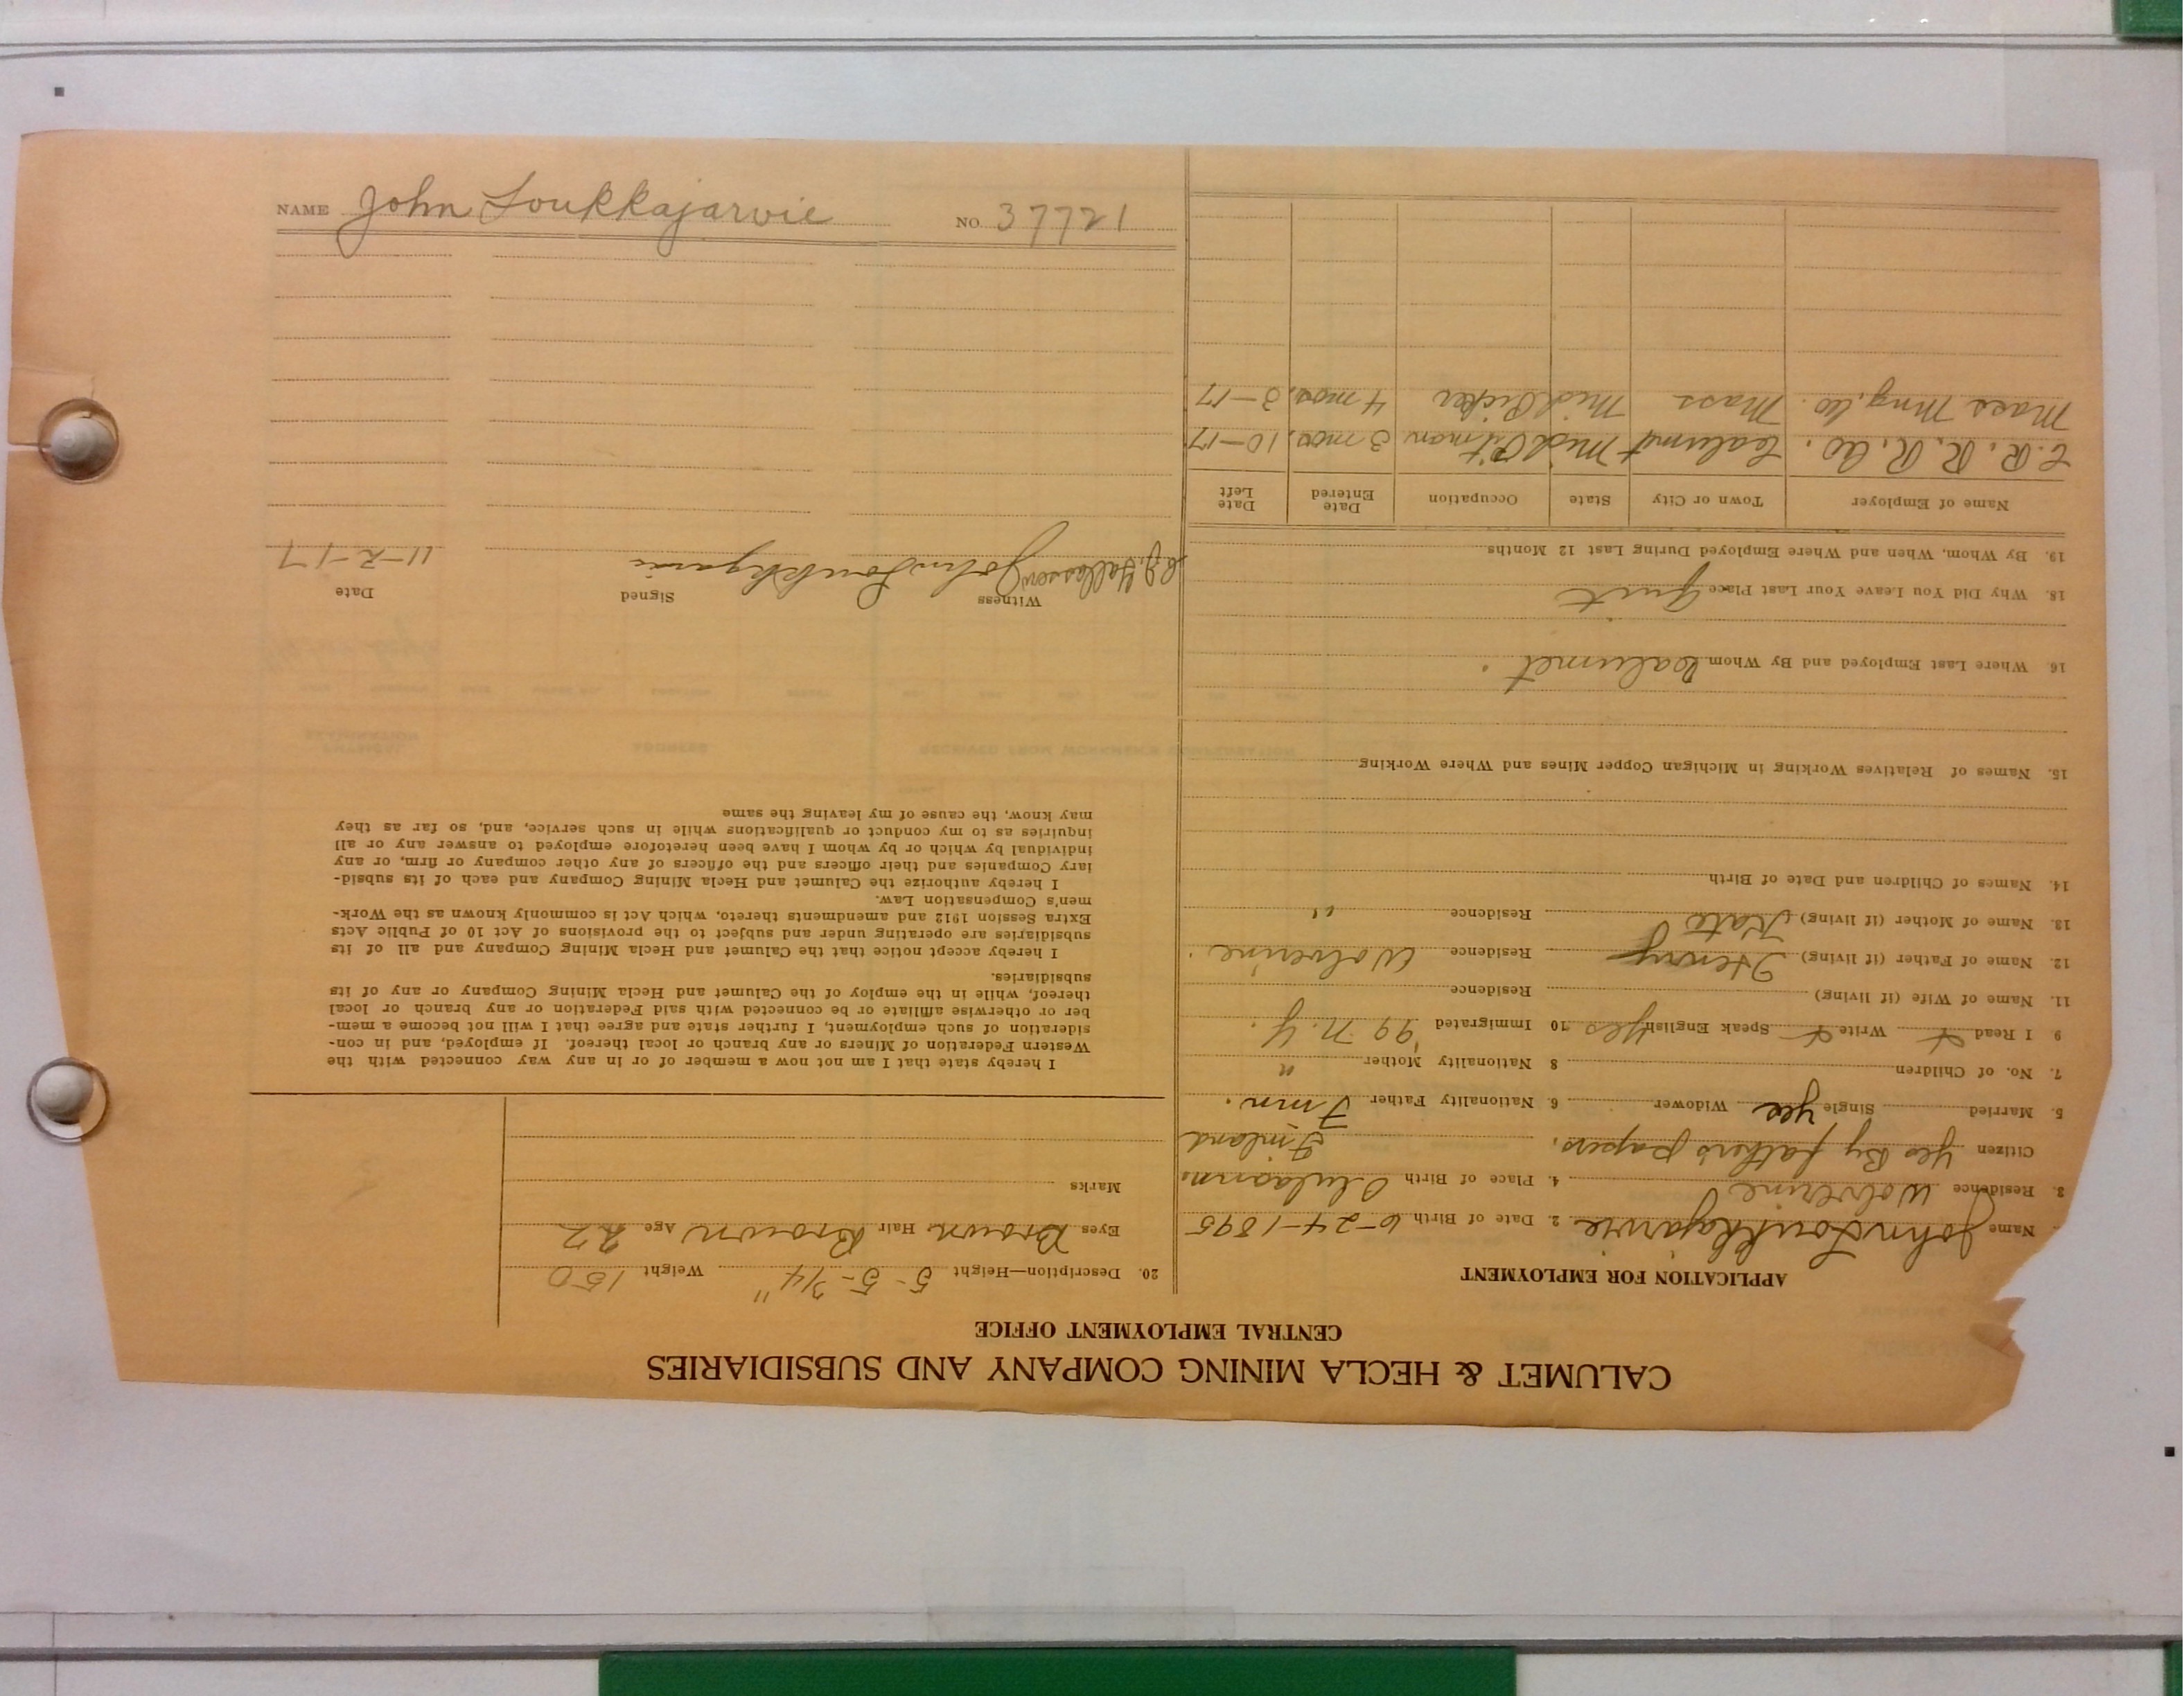 CALUMET & HECLA MINING COMPANY AND SUBSIDIARIES
CENTRAL EMPLOYMENT OFFICE
APPLICATION FOR EMPLOYMENT
Name John Loukkajarvie 2. Date of Birth 6-24-1895
3. Residence Wolverine 4. Place of Birth
Citizen yes By fathers papers. Finland
5. Married Single yes Widower 6. Nationality Father Finn.
7. No. of Children 8 Nationality Mother "
9 I Read Write Speak English yes 10 Immigrated '99 N.Y.
11. Name of Wife (if living) Residence
12. Name of Father (if living) Henry Residence Wolverine.
13. Name of Mother (if living) Kate Residence "
14. Names of Children and Date of Birth
15. Names of Relatives Working in Michigan Copper Mines and Where Working
16 Where Last Employed and By Whom Calumet.
18. Why Did You Leave Your Last Place quit
19. By Whom, When and Where Employed During Last 12 Months
Name of Employer Town or City State Occupation Date Entered Date Left
C. R. R. R. Co. Calumet Mich Pitman 3 mos, 10-17
Mass Mng. Co. Mass Mich Picker 4 mos, 3-17
20. Description—Height 5-5-3/4" Weight 150
Eyes Brown Hair Brown Age 22
Marks
I hereby state that I am not now a member of or in any way connected with the
Western Federation of Miners or any branch or local thereof. If employed, and in con-
sideration of such employment, I further state and agree that I will not become a mem-
ber or otherwise affiliate or be connected with said Federation or any branch or local
thereof, while in the employ of the Calumet and Hecla Mining Company or any of its
subsidiaries.
I hereby accept notice that the Calumet and Hecla Mining Company and all of its
subsidiaries are operating under and subject to the provisions of Act 10 of Public Acts
Extra Session 1912 and amendments thereto, which Act is commonly known as the Work-
men's Compensation Law.
I hereby authorize the Calumet and Hecla Mining Company and each of its subsid-
iary Companies and their officers and the officers of any other company or firm, or any
individual by which or by whom I have been heretofore employed to answer any or all
inquiries as to my conduct or qualifications while in such service, and, so far as they
may know, the cause of my leaving the same
Witness Signed Date
John Loukkajarvie 11-2-17
NAME John Loukkajarvie NO. 37721